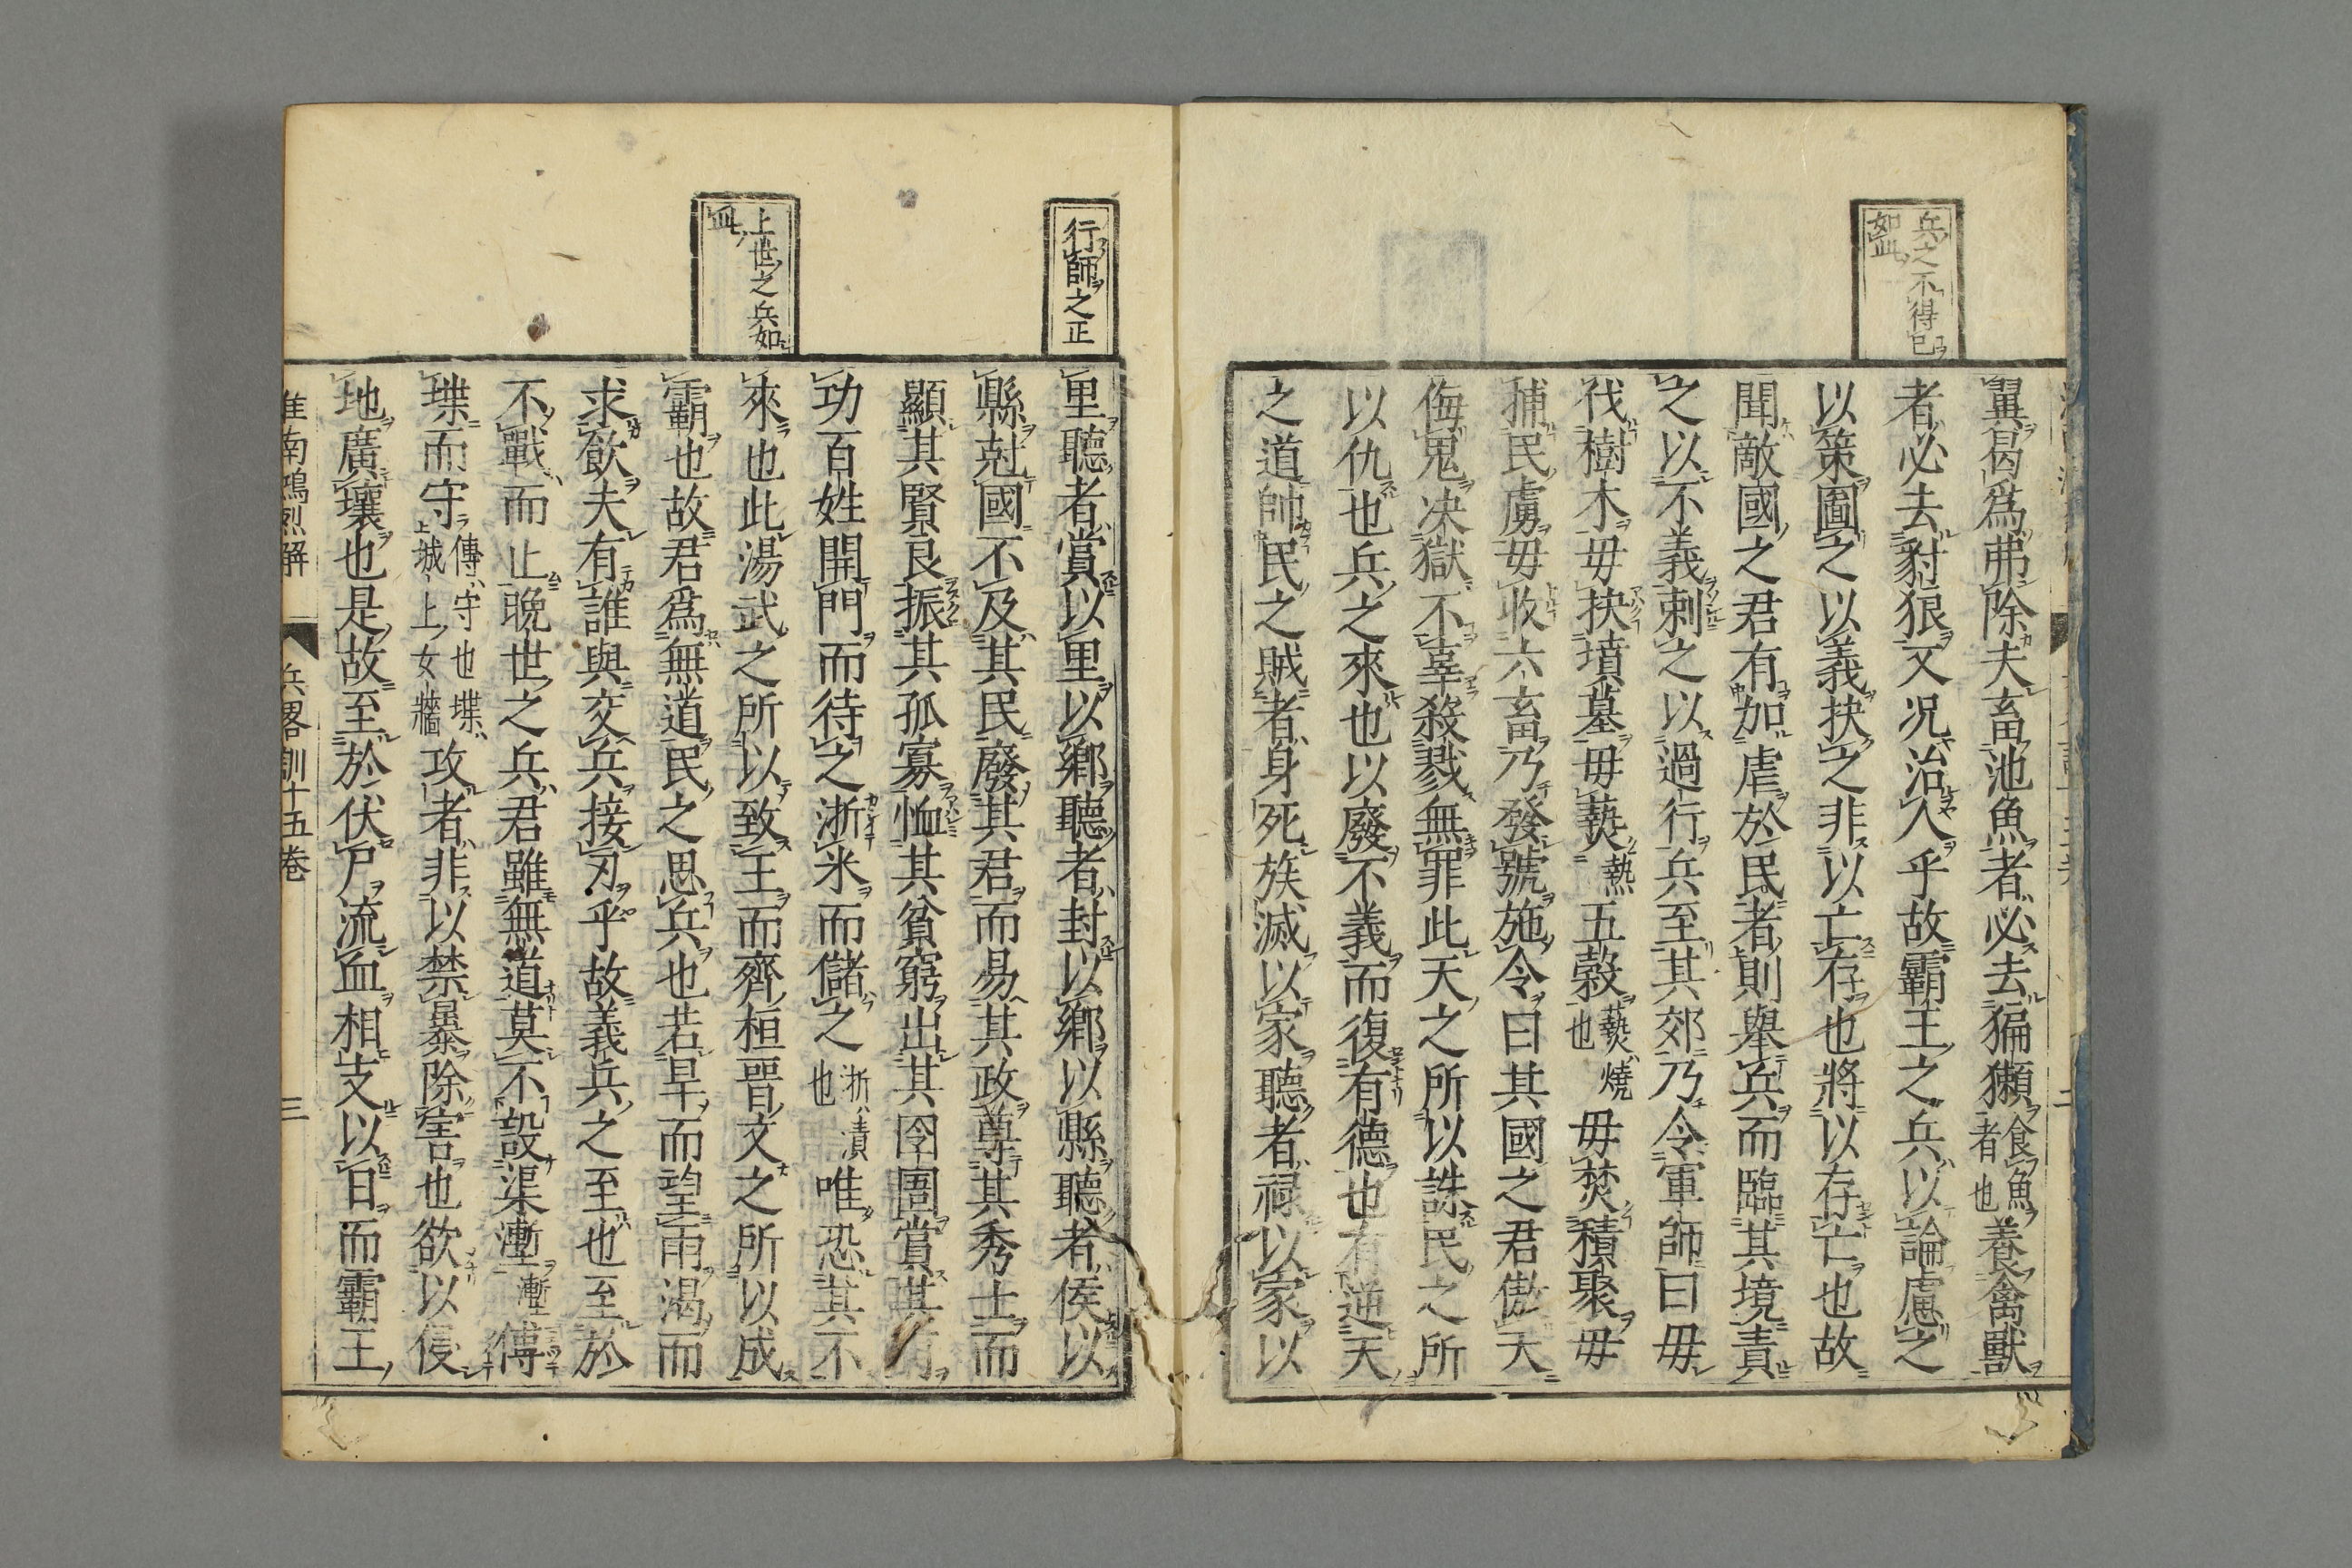 兵之不得已
如此
翼曷爲弗除夫畜池魚者必去猵獺食魚者也養禽獸
者必去豺狼又况治人乎故霸王之兵以論慮之
以策圖之以義抉之非以亡存也將以存亡也故
聞敵國之君有加虐於民者則舉兵而臨其境責
之以不義刺之以過行兵至其郊乃令軍師曰毋
伐樹木毋抉墳墓毋爇熱五穀爇燒也毋焚積聚毋
捕民虜毋收六畜乃發號施令曰其國之君傲天
侮鬼决獄不辜殺戮無罪此天之所以誅民之所
以仇也兵之來也以廢不義而復有德也有逆天
之道帥民之賊者身死族滅以家聽者祿以家以
行師之正
上世之兵如
此
里聽者賞以里以鄉聽者封以鄉以縣聽者侯以
縣尅國不及其民廢其君而易其政尊其秀士而
顯其賢良振其孤寡恤其貧窮出其囹圄賞其有
功百姓開門而待之淅米而儲之淅漬也唯恐其不
來也此湯武之所以致王而齊桓晉文之所以成
霸也故君爲無道民之思兵也若旱而望雨渴而
求飮夫有誰與交兵接刃乎故義兵之至也至於
不戰而止晚世之兵君雖無道莫不設渠壍壍傅
堞而守傅守也堞城上女牆攻者非以禁暴除害也欲以侵
地廣壤也是故至於伏尸流血相支以日而霸王
淮南鴻烈解 兵畧訓十五卷 三